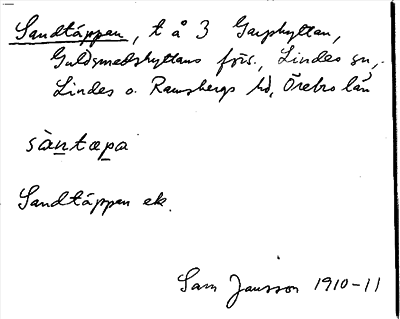 Sandtäppen, t å 3 Garphyttan,
Guldsmedshyttans förs., Lindes sn,
Lindes o. Ramsbergs hd, Örebro län
sàntæpa
Sandtäppen ek.
Sam Jansson 1910-11